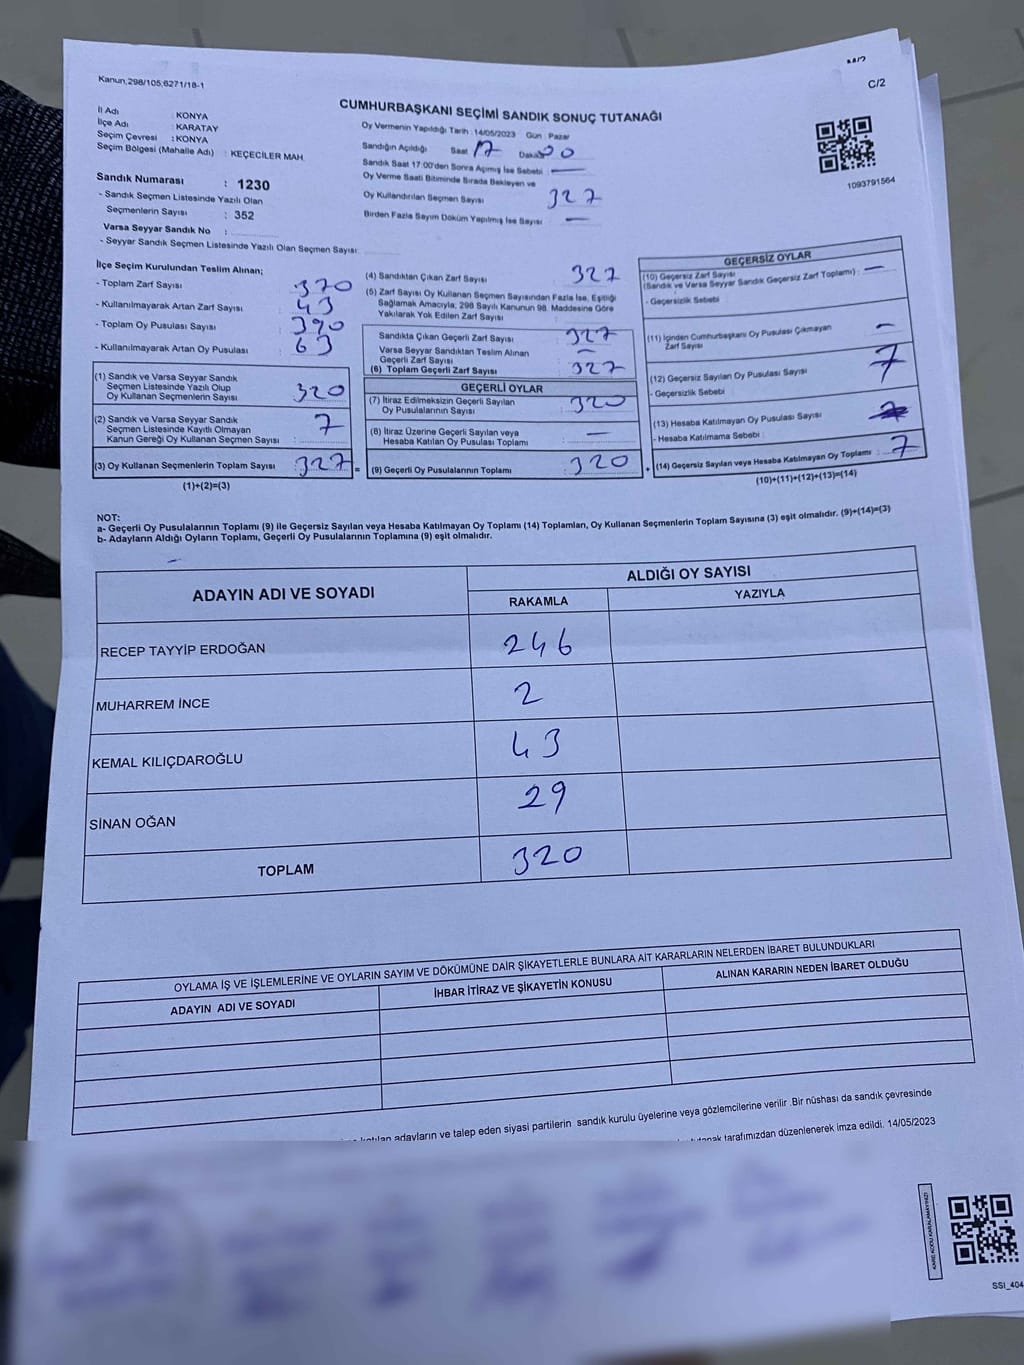 Kanun,298/105,6271/18-1
C/2
CUMHURBAŞKANI SEÇİMİ SANDIK SONUÇ TUTANAĞI
İl Adı : KONYA
İlçe Adı : KARATAY
Seçim Çevresi : KONYA
Seçim Bölgesi (Mahalle Adı) : KEÇECİLER MAH.
Sandık Numarası : 1230
- Sandık Seçmen Listesinde Yazılı Olan
Seçmenlerin Sayısı : 352
Varsa Seyyar Sandık No :
- Seyyar Sandık Seçmen Listesinde Yazılı Olan Seçmen Sayısı:
Oy Vermenin Yapıldığı Tarih : 14/05/2023 Gün : Pazar
Sandığın Açıldığı Saat 17 Dakika 00
Sandık Saat 17:00'den Sonra Açımış İse Sebebi : —
Oy Verme Saati Bitiminde Sırada Bekleyen ve
Oy Kullandırılan Seçmen Sayısı 327
Birden Fazla Sayım Döküm Yapılmış İse Sayısı : —
1093791564
İlçe Seçim Kurulundan Teslim Alınan;
- Toplam Zarf Sayısı : 370
- Kullanılmayarak Artan Zarf Sayısı : 43
- Toplam Oy Pusulası Sayısı : 390
- Kullanılmayarak Artan Oy Pusulası : 63
(1) Sandık ve Varsa Seyyar Sandık
Seçmen Listesinde Yazılı Olup
Oy Kullanan Seçmenlerin Sayısı : 320
(2) Sandık ve Varsa Seyyar Sandık
Seçmen Listesinde Kayıtlı Olmayan
Kanun Gereği Oy Kullanan Seçmen Sayısı : 7
(3) Oy Kullanan Seçmenlerin Toplam Sayısı : 327 =
(1)+(2)=(3)
(4) Sandıktan Çıkan Zarf Sayısı 327
(5) Zarf Sayısı Oy Kullanan Seçmen Sayısından Fazla İse, Eşitliği
Sağlamak Amacıyla; 298 Sayılı Kanunun 98. Maddesine Göre
Yakılarak Yok Edilen Zarf Sayısı :
Sandıkta Çıkan Geçerli Zarf Sayısı : 327
Varsa Seyyar Sandıktan Teslim Alınan
Geçerli Zarf Sayısı : —
(6) Toplam Geçerli Zarf Sayısı : 327
GEÇERLİ OYLAR
(7) İtiraz Edilmeksizin Geçerli Sayılan
Oy Pusulalarının Sayısı : 320
(8) İtiraz Üzerine Geçerli Sayılan veya
Hesaba Katılan Oy Pusulası Toplamı : —
(9) Geçerli Oy Pusulalarının Toplamı : 320 +
GEÇERSİZ OYLAR
(10) Geçersiz Zarf Sayısı
(Sandık ve Varsa Seyyar Sandık Geçersiz Zarf Toplamı) : —
- Geçersizlik Sebebi
(11) İçinden Cumhurbaşkanı Oy Pusulası Çıkmayan
Zarf Sayısı —
(12) Geçersiz Sayılan Oy Pusulası Sayısı 7
- Geçersizlik Sebebi
(13) Hesaba Katılmayan Oy Pusulası Sayısı
- Hesaba Katılmama Sebebi :
(14) Geçersiz Sayılan veya Hesaba Katılmayan Oy Toplamı : 7
(10)+(11)+(12)+(13)=(14)
NOT:
a- Geçerli Oy Pusulalarının Toplamı (9) ile Geçersiz Sayılan veya Hesaba Katılmayan Oy Toplamı (14) Toplamları, Oy Kullanan Seçmenlerin Toplam Sayısına (3) eşit olmalıdır. (9)+(14)=(3)
b- Adayların Aldığı Oyların Toplamı, Geçerli Oy Pusulalarının Toplamına (9) eşit olmalıdır.
ADAYIN ADI VE SOYADI
ALDIĞI OY SAYISI
RAKAMLA YAZIYLA
RECEP TAYYİP ERDOĞAN 246
MUHARREM İNCE 2
KEMAL KILIÇDAROĞLU 43
SİNAN OĞAN 29
TOPLAM 320
OYLAMA İŞ VE İŞLEMLERİNE VE OYLARIN SAYIM VE DÖKÜMÜNE DAİR ŞİKAYETLERLE BUNLARA AİT KARARLARIN NELERDEN İBARET BULUNDUKLARI
ADAYIN ADI VE SOYADI İHBAR İTİRAZ VE ŞİKAYETİN KONUSU ALINAN KARARIN NEDEN İBARET OLDUĞU
adayların ve talep eden siyasi partilerin sandık kurulu üyelerine veya gözlemcilerine verilir .Bir nüshası da sandık çevresinde
tarafımızdan düzenlenerek imza edildi. 14/05/2023
KARE KODU KARALAMAYINIZ!
SSI_404